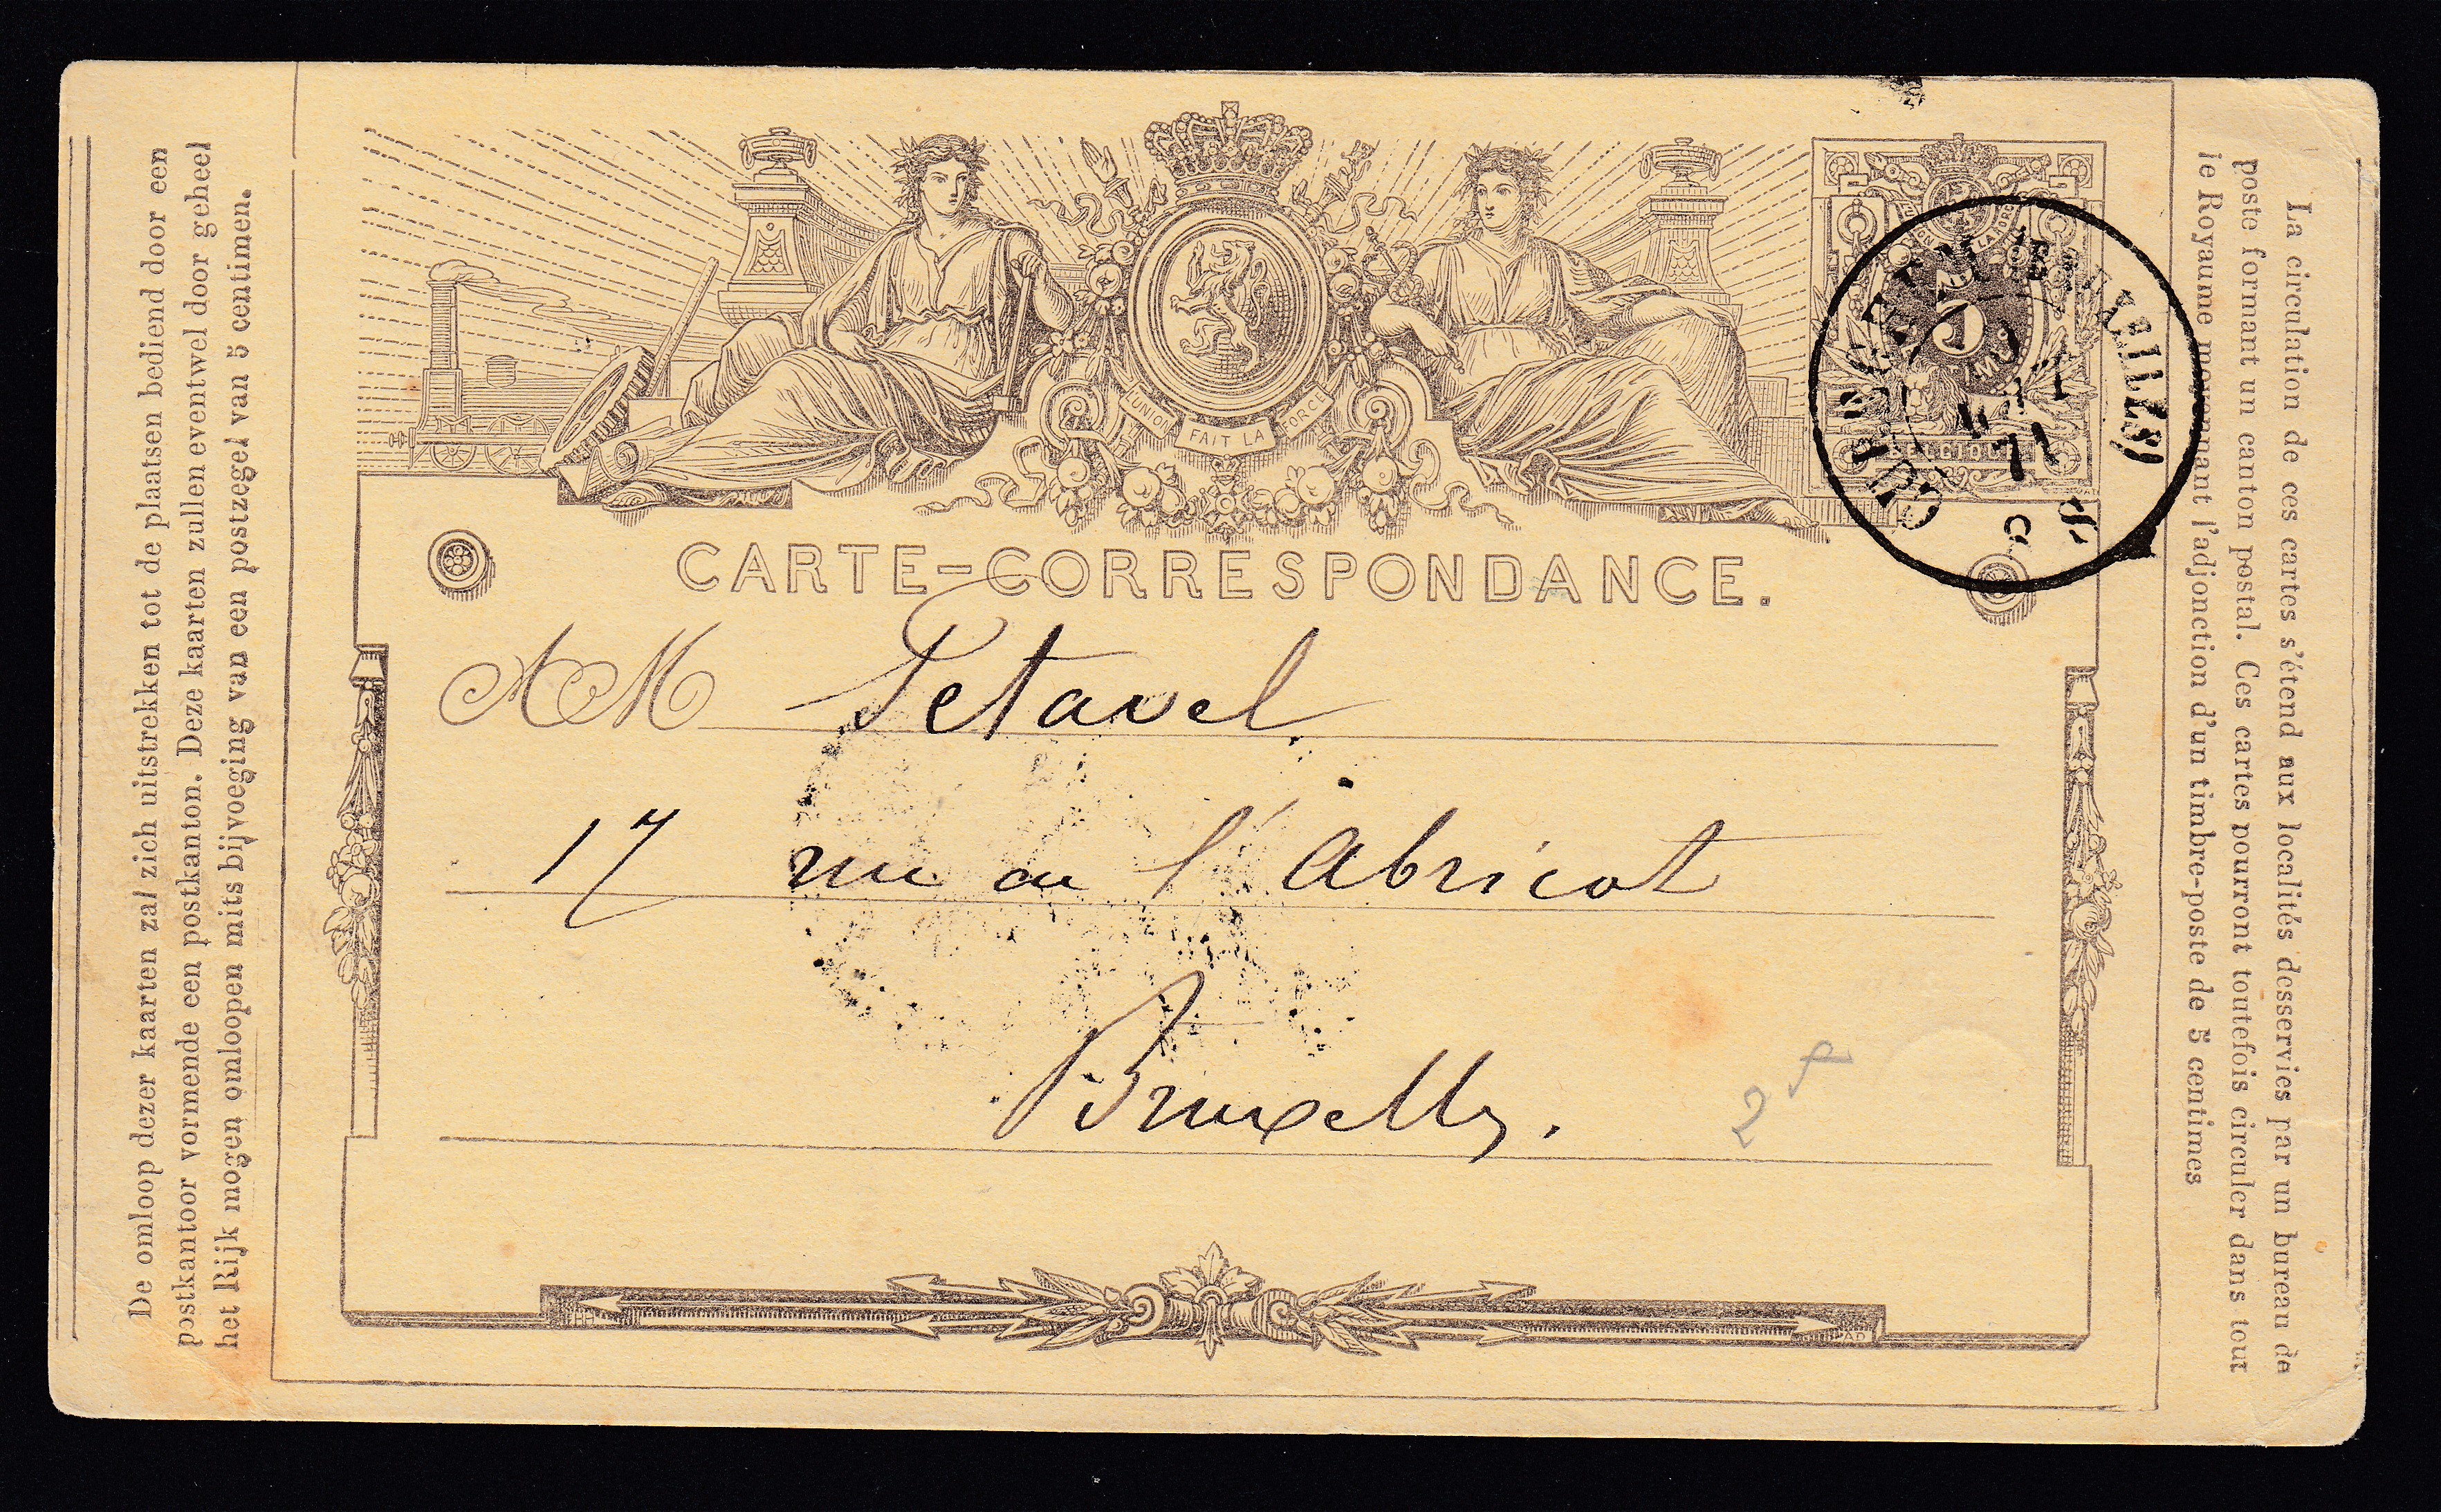 De omloop dezer kaarten zal zich uitstrekken tot de plaatsen bediend door een
postkantoor vormende een postkanton. Deze kaarten zullen eventwel door geheel
het Rijk mogen omloopen mits bijvoeging van een postzegel van 5 centimen.
UNION FAIT LA FORCE
5
BELGIQUE
71
CARTE-CORRESPONDANCE.
A M Petavel.
17 rue de l'Abricot
Bruxelles.
2
AD
La circulation de ces cartes s'étend aux localités desservies par un bureau de
poste formant un canton postal. Ces cartes pourront toutefois circuler dans tout
le Royaume moyennant l'adjonction d'un timbre-poste de 5 centimes